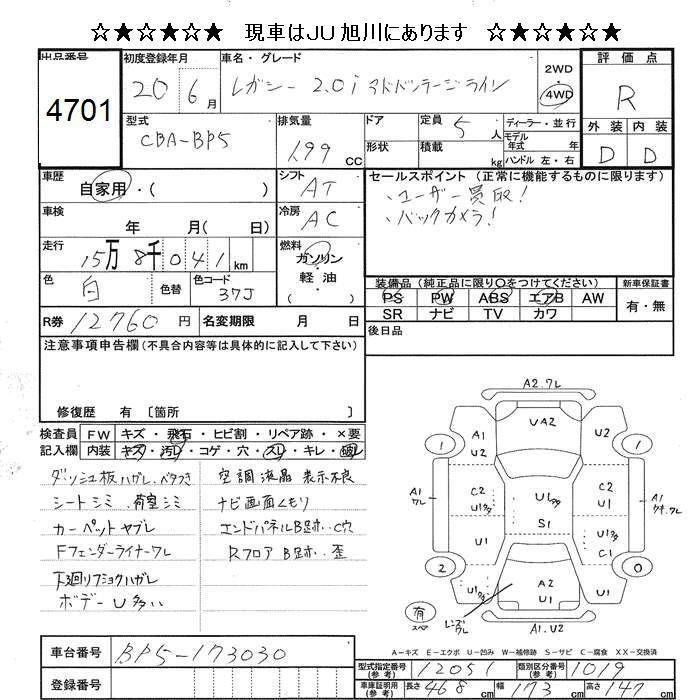 ☆★☆★☆ 現車はJU旭川にあります ☆★☆★☆
出品番号 4701
初度登録年月 20 6月
車名・グレード レガシー 2.0i アドバンテージライン
2WD 4WD
評価点 R
外装 内装
D D
型式 CBA-BP5
排気量 1.99 cc
ドア
形状
定員 5人
積載 kg
ディーラー・並行
モデル年式 年
ハンドル 左・右
車歴 自家用・( )
シフト AT
車検 年 月( 日)
冷房 AC
走行 15万8千041km
燃料 ガソリン・軽油・( )
色 白 色替 色コード 37J
R券 12760円 名変期限 月 日
セールスポイント(正常に機能するものに限ります)
、ユーザー買取!
、バックカメラ!
装備品(純正品に限り○をつけてください)
PS PW ABS エアB AW
SR ナビ TV カワ
新車保証書 有・無
後日品
注意事項申告欄(不具合内容等は具体的に記入して下さい)
修復歴 有〔箇所
検査員記入欄
FW キズ・飛石・ヒビ割・リペア跡・×要
内装 キズ・汚レ・コゲ・穴・スレ・キレ・破レ
ダッシュ板ハガレ、ベタつき
シートシミ、荷室シミ
カーペットヤブレ
Fフェンダーライナーワレ
下廻リフショクハガレ
ボデーU多い
空調液晶 表示不良
ナビ画面くもり
エンドパネルB跡、C穴
Rフロア B跡、歪
A2.ワレ
A1 U2
UA2
U2
1
1
A1 ワレ
C2 U1
U1
S1
C2 U1
A1 キ.ワレ
U1
U1 C1
2
0
U1
A2 U1
U1
有 スペア
レンズワレ
A1.U2
A-キズ E-エクボ U-凹み W-補修跡 S-サビ C-腐食 XX-交換済
車台番号 BP5-173030
登録番号
型式指定番号(参考) 12051 類別区分番号(参考) 1019
車庫証明用(参考) 長さ 468cm 幅 173cm 高さ 147cm